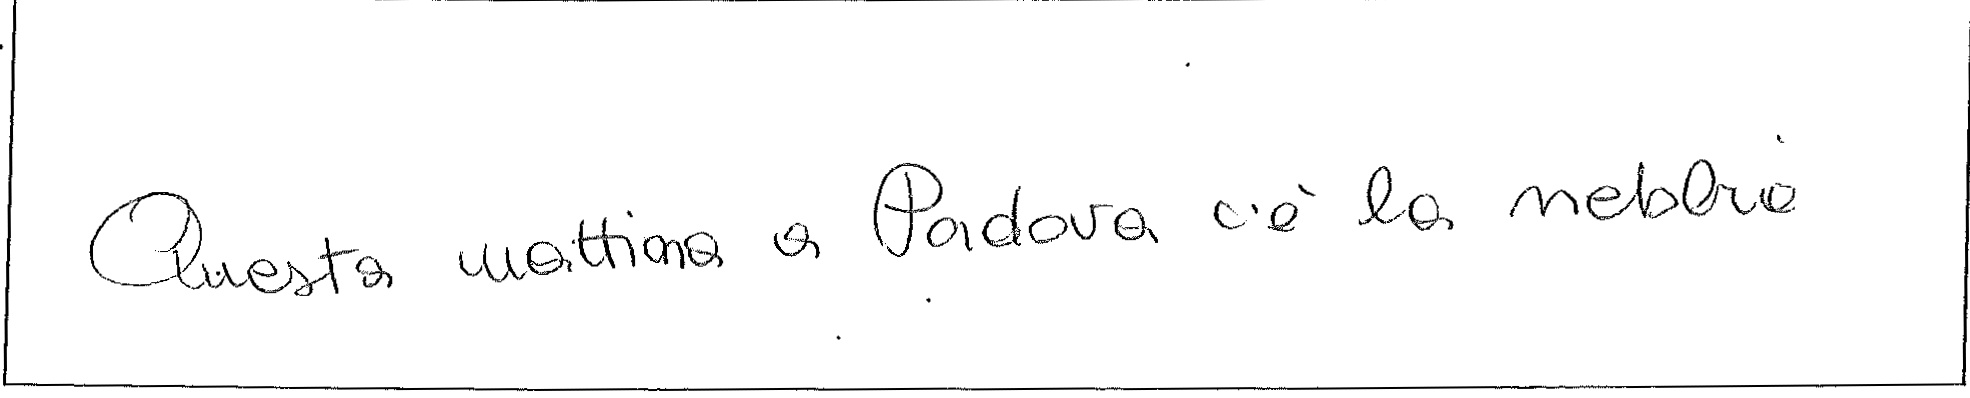 Questa mattina a Padova c'è la nebbia